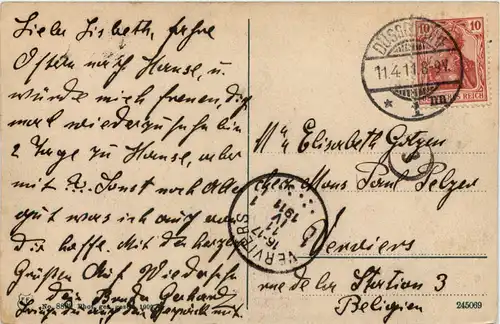 Liebe Lisbeth, fahre
Ostern nach Hause, u.
würde mich freuen, dich
mal wiederzusehn bin
2 Tage zu Hause, aber
mit ?. Sonst noch Alles
gut was ich auch von
dir hoffe. Mit herzl.
Grüßen Auf Wiedersehn
dein Bruder Gerhard
DÜSSELDORF
11.4.11. 8-9V.
* 1 nn
10
REICH
Mlle Elisabeth Gotzen
chez Mons Paul Pelzer
Verviers
rue de la Station 3
Belgien
VERVIERS
16-17
IV
1911
1
245069